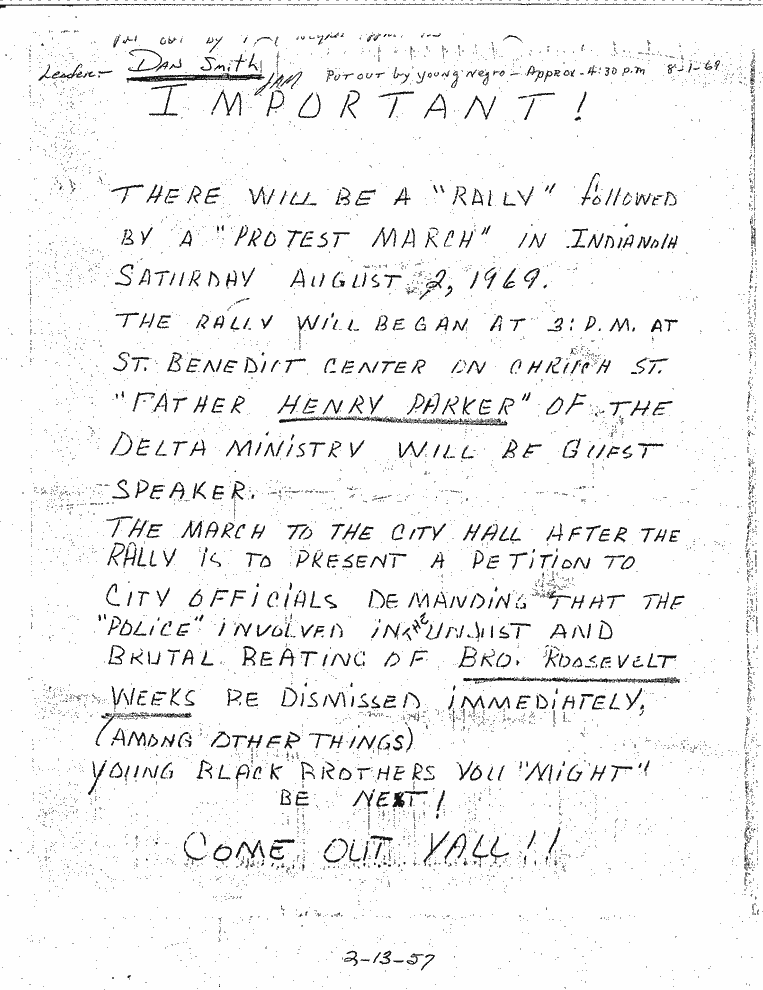 Put out by
Leader - DAN Smith JAM PUT OUT by young Negro - Approx - 4:30 P.M 8-1-69
IMPORTANT!
THERE WILL BE A "RALLY" followED
BY A "PROTEST MARCH" IN INDIANOlA
SATURDAY AUGUST 2, 1969.
THE RALLY WILL BEGAN AT 3: P.M. AT
ST. BENEDICT CENTER ON CHRUCH ST.
"FATHER HENRY PARKER" OF THE
DELTA MINISTRY WILL BE GUEST
SPEAKER.
THE MARCH TO THE CITY HALL AFTER THE
RALLY IS TO PRESENT A PETITION TO
CITY OFFICIALS DEMANDING THAT THE
"POLICE" INVOLVED IN THE UNJUST AND
BRUTAL BEATING OF BRO. ROOSEVELT
WEEKS BE DISMISSED IMMEDIATELY,
(AMONG OTHER THINGS)
YOUNG BLACK BROTHERS YOU "MIGHT"
BE NEXT!
COME OUT YALL!!
2-13-57